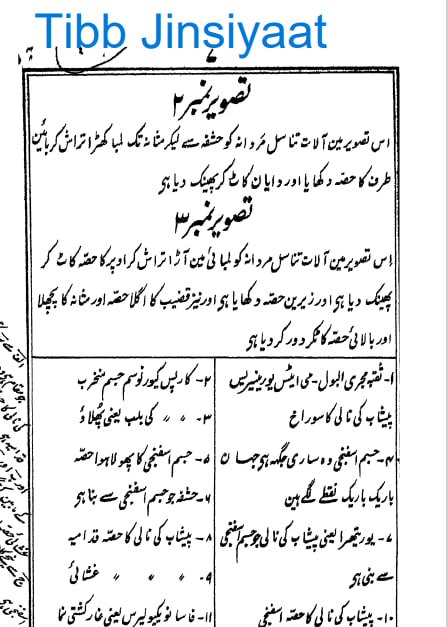 Tibb Jinsiyaat
۷
تصویر نمبر ۲
اس تصویر مین آلات تناسل مردانہ کو حشفہ سے لیکر مثانہ تک لمبا کھڑا تراش کر بائین
طرف کا حصہ دکھایا اور دایان کاٹ کر پھینک دیا ہی
تصویر نمبر ۳
اس تصویر مین آلات تناسل مردانہ کو لمبائی مین آڑا تراش کر اوپر کا حصہ کاٹ کر
پھینک دیا ہی اور زیرین حصہ دکھایا ہی اور نیز قضیب کا اگلا حصہ اور مثانہ کا پچھلا
اور بالائی حصہ کاٹکر دور کر دیا ہی
۱- ثقبہ مجری البول - می ایٹس یورینیریس
پیشاب کی نالی کا سوراخ
۲- کارپس کیورنوسم جسم منخرب
۳- 〃 〃 کی بلب یعنی پھلاؤ
۴- جسم اسفنجی وہ ساری جگہ ہی جہان
باریک باریک نقطے لگے ہین
۵- جسم اسفنجی کا پھولا ہوا حصہ
۶- حشفہ جو جسم اسفنجی سے بنا ہی
۷- یوریتھرا یعنی پیشاب کی نالی جو جسم اسفنجی
سے بنی ہی
۸- پیشاب کی نالی کا حصہ قدامیہ
۹- 〃 〃 〃 〃 غشائی
۱۰- پیشاب کی نالی کا حصہ اسفنجی
۱۱- فاسا نویکیولیرس یعنی غار کشتی نما